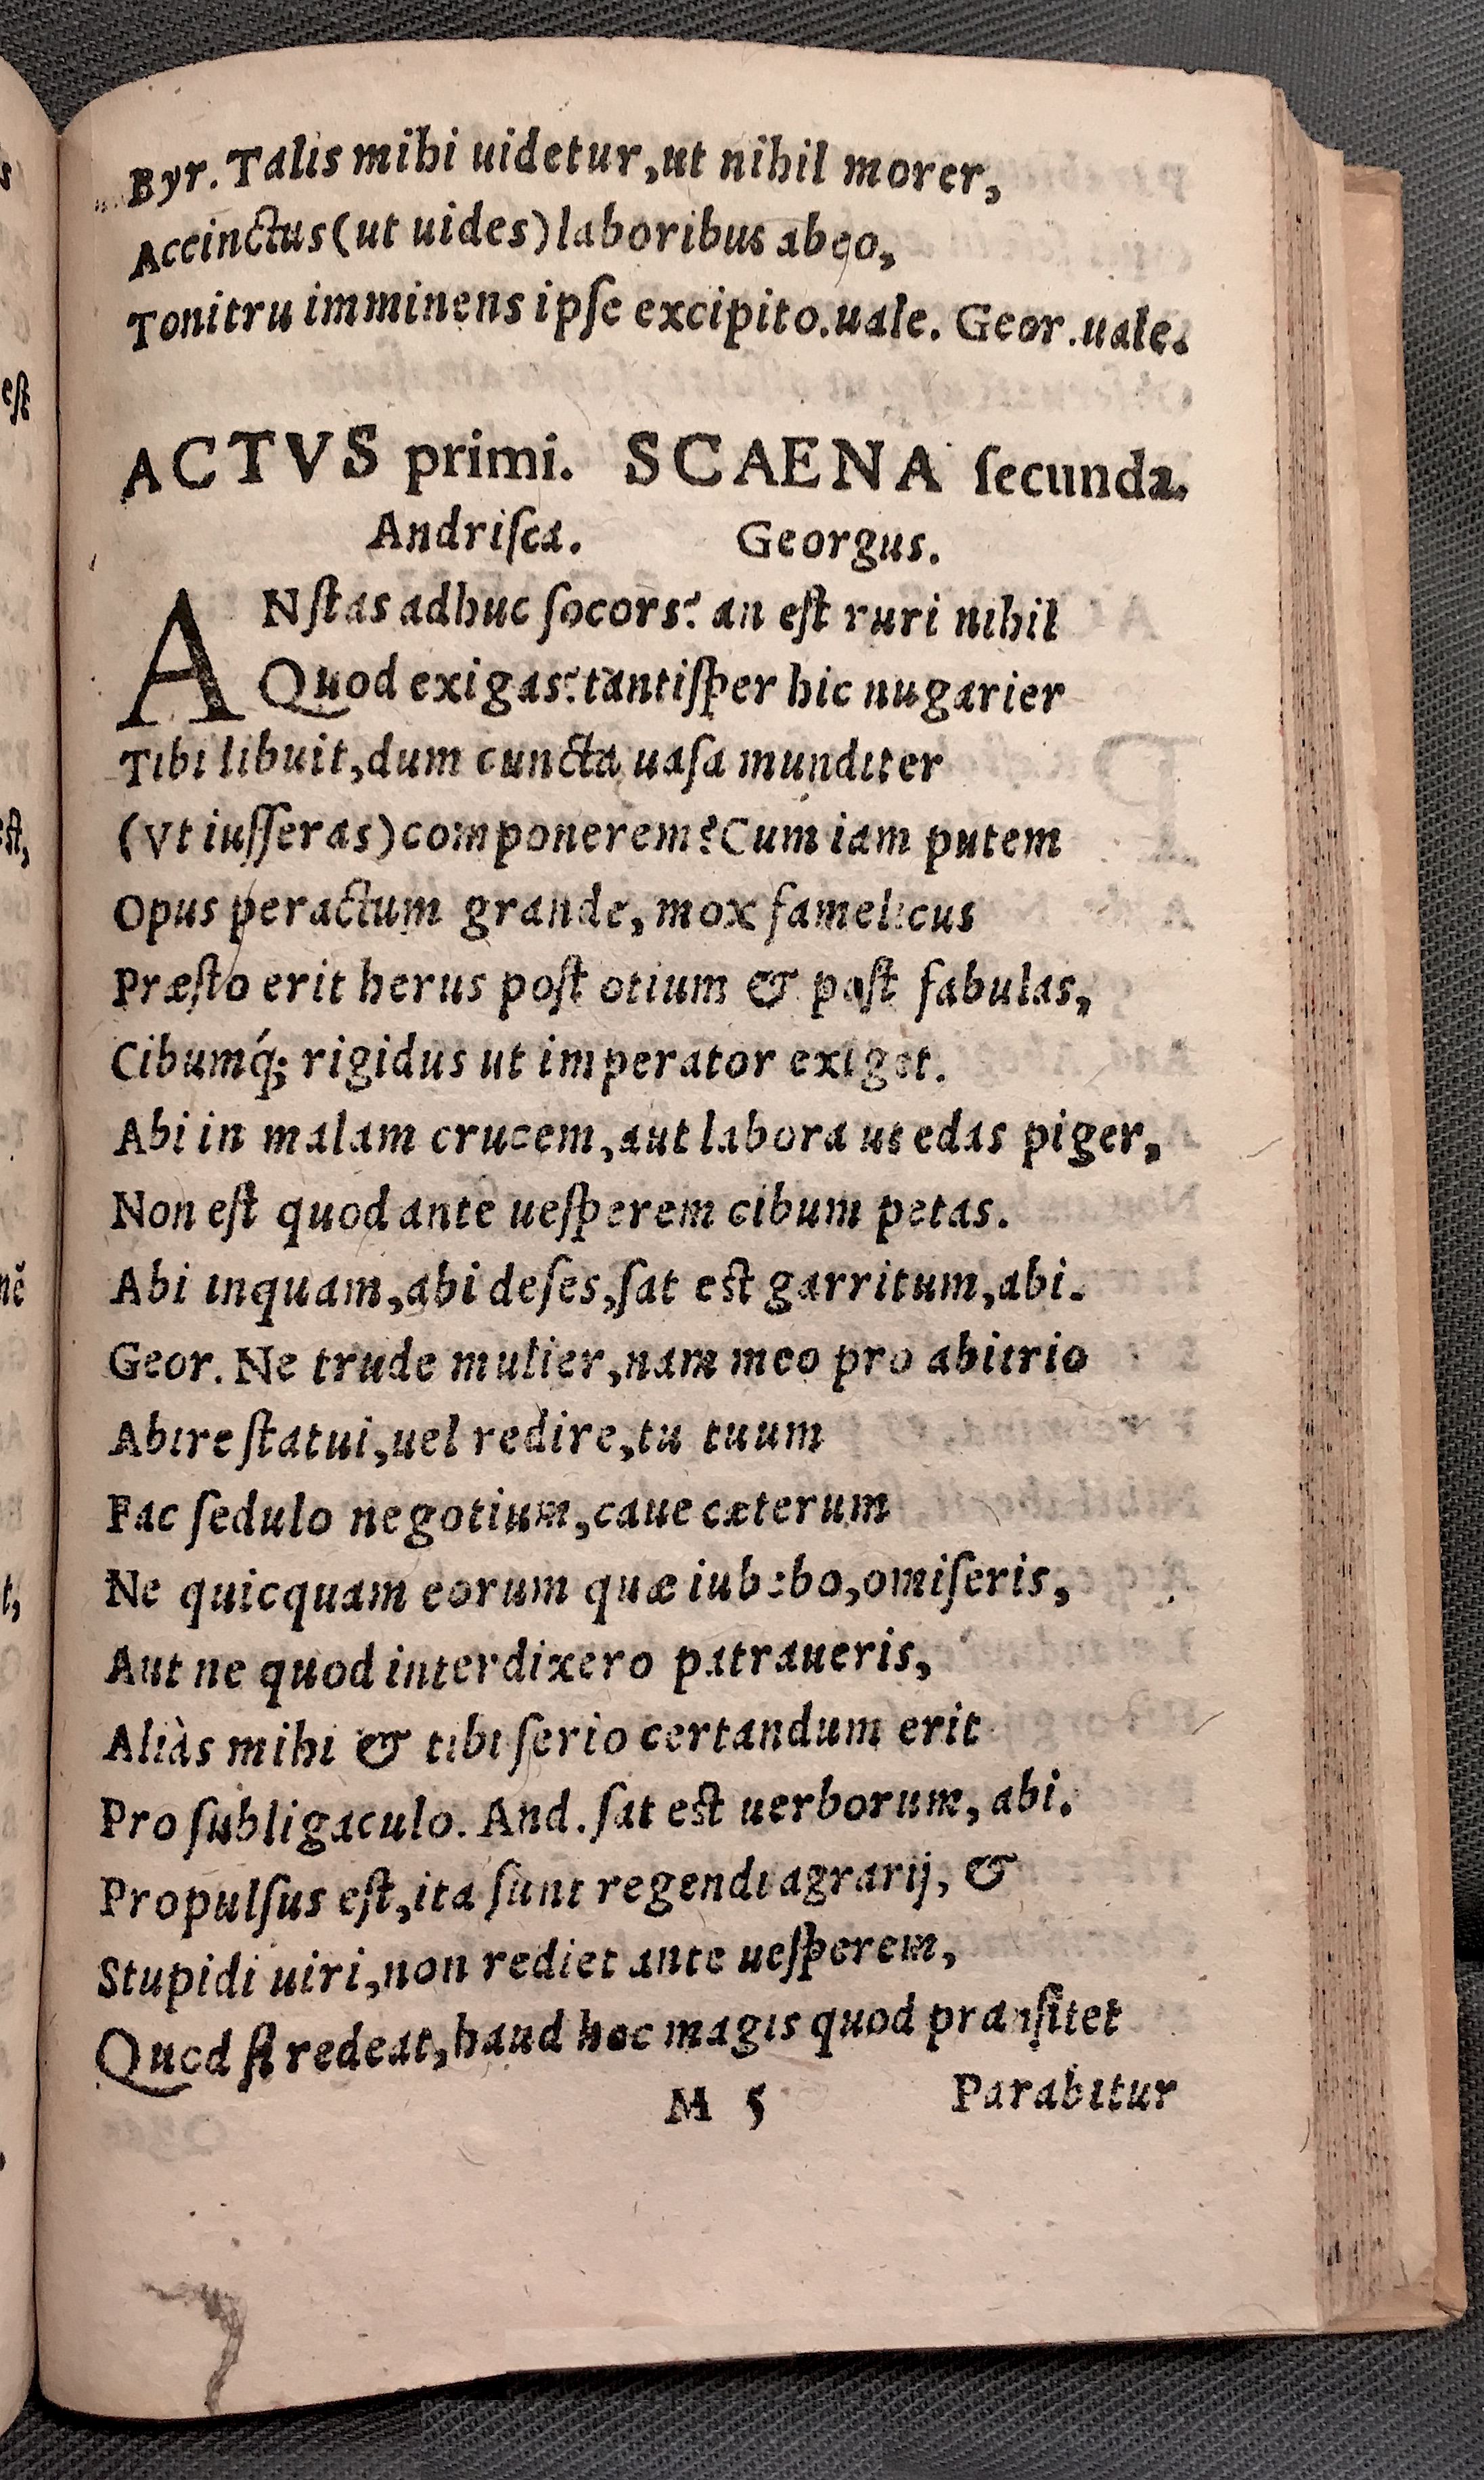 Byr. Talis mihi uidetur, ut nihil morer,
Accinctus (ut uides) laboribus abeo,
Tonitru imminens ipſe excipito. uale. Geor. uale.
ACTVS primi. SCAENA ſecunda.
Andriſca. Georgus.
ANſtas adhuc ſocors? an eſt ruri nihil
Quod exigas? tantiſper hic nugarier
Tibi libuit, dum cuncta uaſa munditer
(Vt iuſſeras) componerem? Cum iam putem
Opus peractum grande, mox famelicus
Præſto erit herus poſt otium & poſt fabulas,
Cibumq́; rigidus ut imperator exiget.
Abi in malam crucem, aut labora ut edas piger,
Non eſt quod ante ueſperem cibum petas.
Abi inquam, abi deſes, ſat est garritum, abi.
Geor. Ne trude mulier, nam meo pro abitrio
Abire ſtatui, uel redire, tu tuum
Fac ſedulo negotium, caue cæterum
Ne quicquam eorum quæ iubebo, omiſeris,
Aut ne quod interdixero patraueris,
Aliàs mihi & tibi ſerio certandum erit
Pro ſubligaculo. And. ſat est uerborum, abi.
Propulſus eſt, ita ſunt regendi agrarij, &
Stupidi uiri, non rediet ante ueſperem,
Quod ſi redeat, haud hoc magis quod pranſitet
M 5 Parabitur
est
eſt,
nĕ
t,